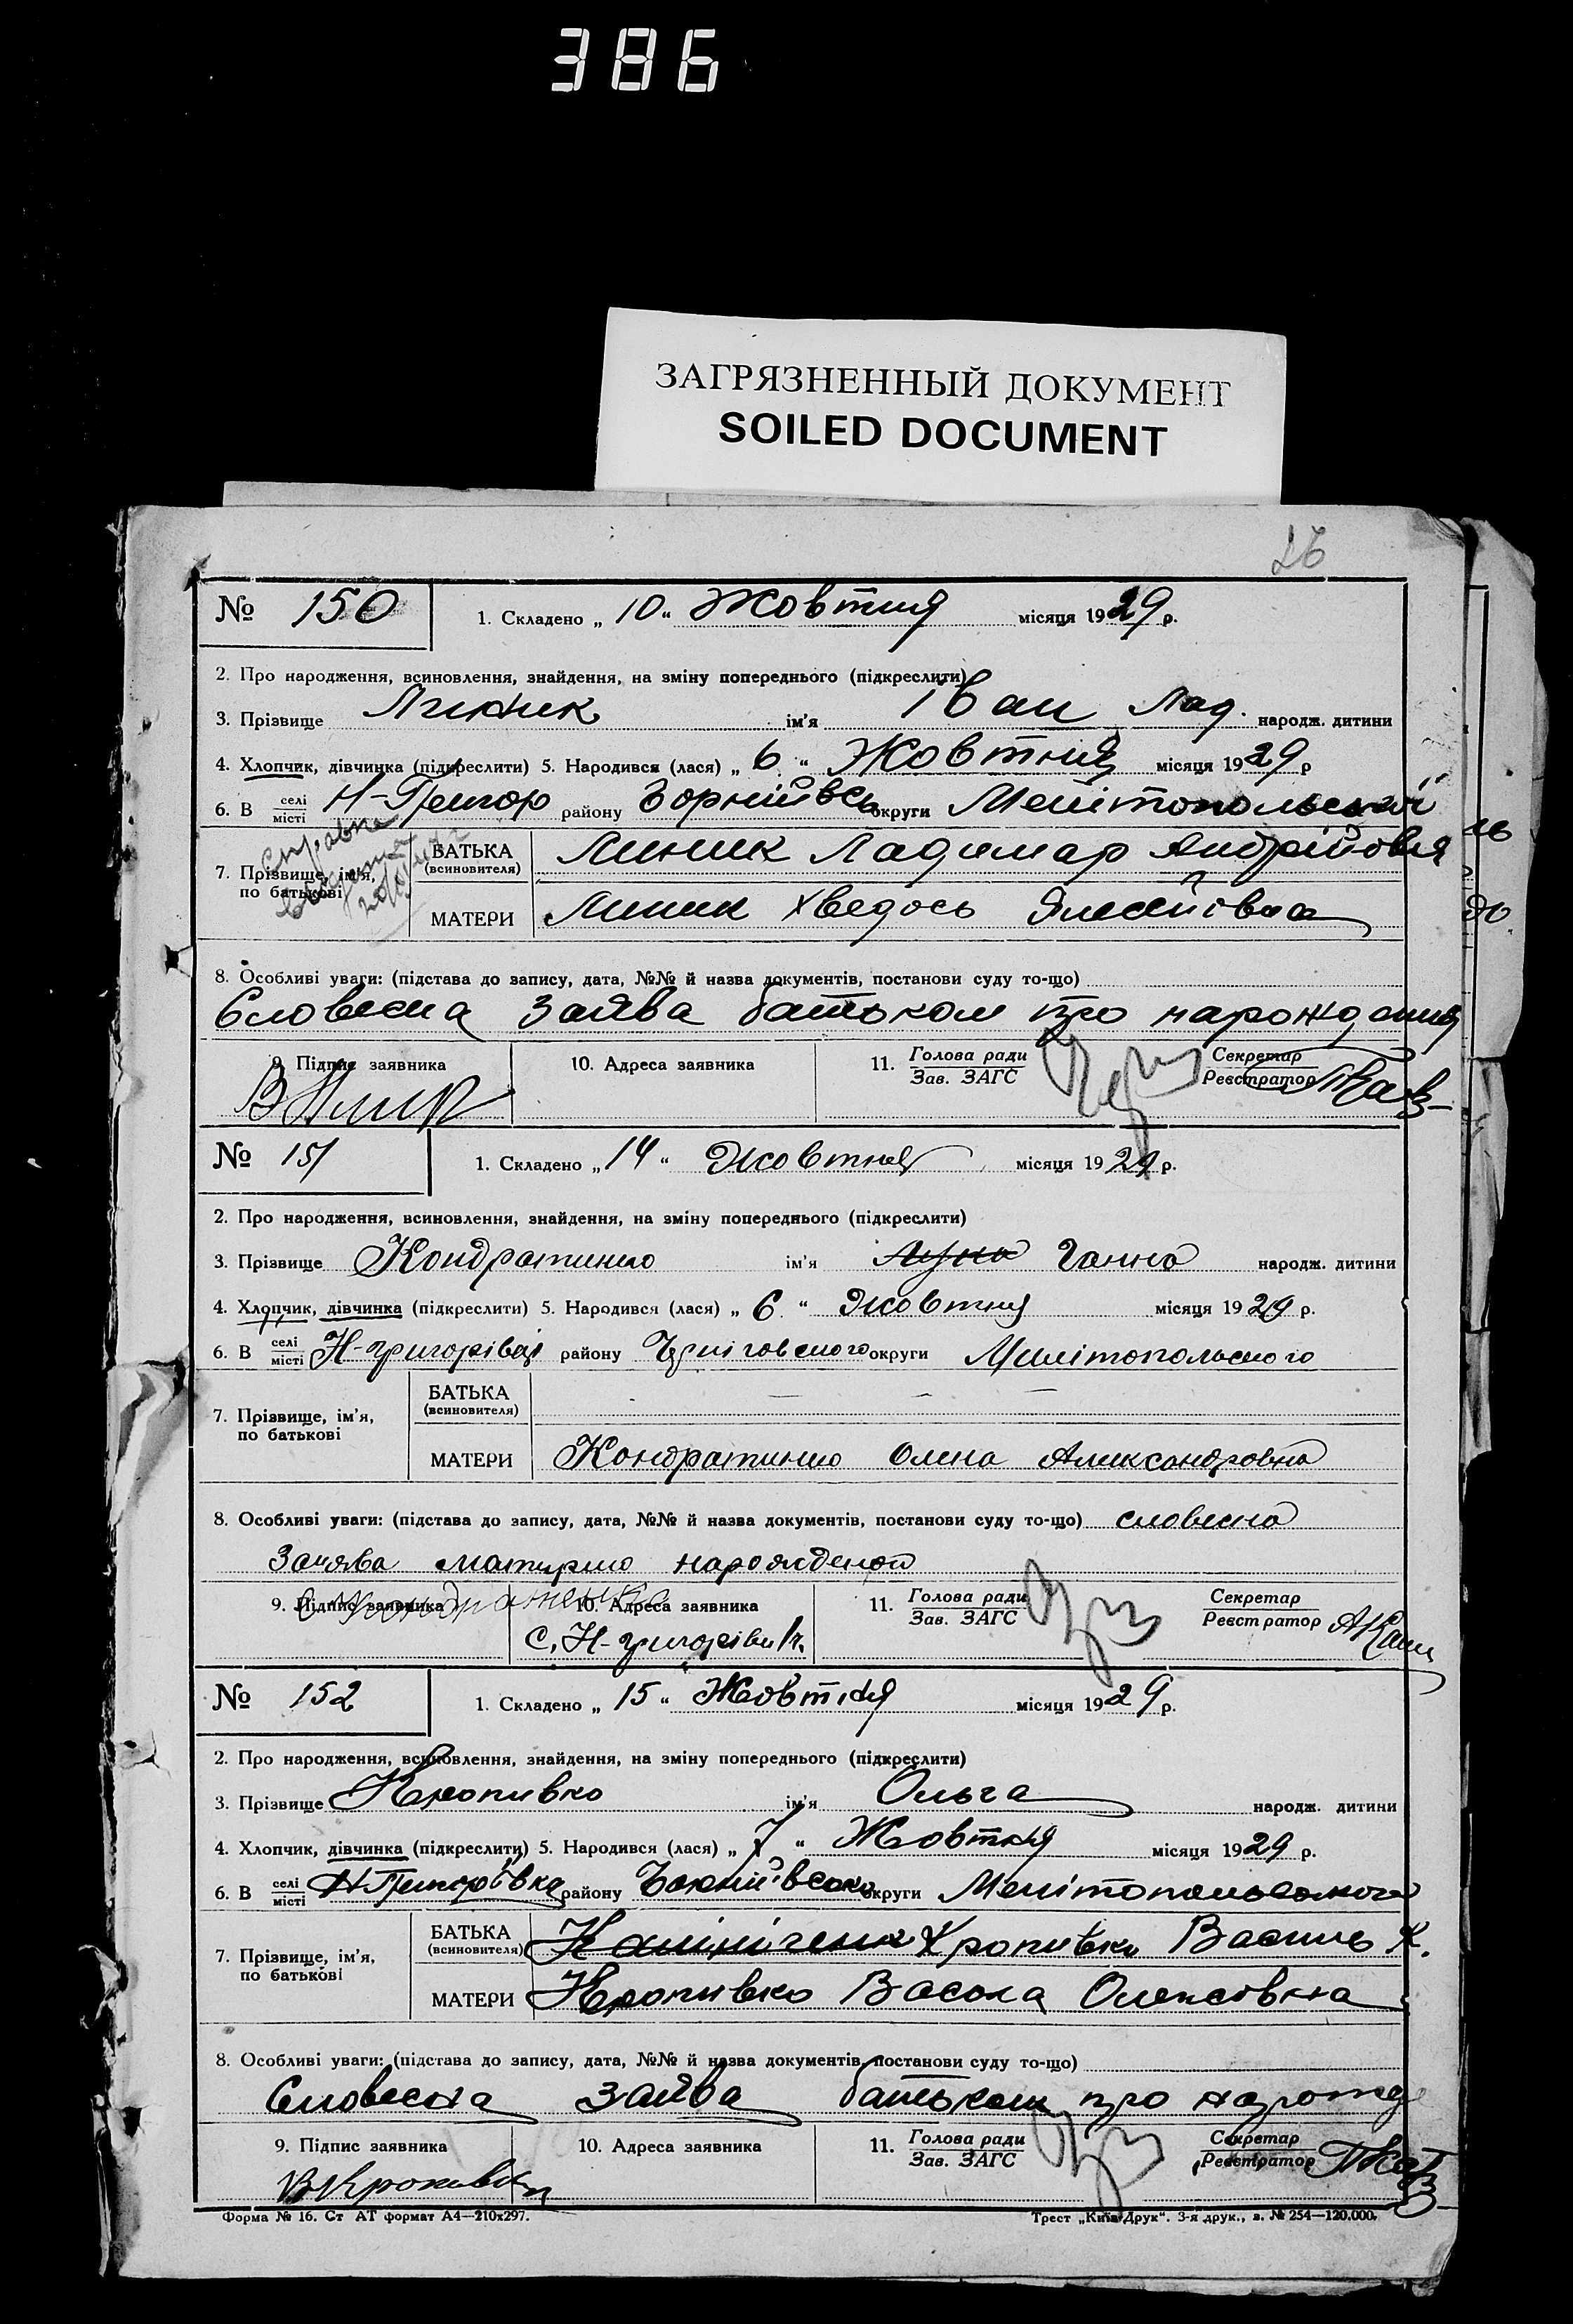 386
ЗАГРЯЗНЕННЫЙ ДОКУМЕНТ
SOILED DOCUMENT
26
№ 150 1. Складено „ 10 “ Жовтня місяця 1929 р.
2. Про народження, всиновлення, знайдення, на зміну попереднього (підкреслити)
3. Прізвище Линник ім'я Іван Лад. народж. дитини
4. Хлопчик, дівчинка (підкреслити) 5. Народився (лася) „ 6 “ Жовтня місяця 1929 р
6. В селі місті Н-Григор району округи Мелітопольської
7. Прізвище, ім'я, по батькові
БАТЬКА (всиновителя) Линик Ладимар Андрійовія
МАТЕРИ Линик Хведось
8. Особливі уваги: (підстава до запису, дата, №№ й назва документів, постанови суду то-що)
Словесна заява батьком про нарождания
9. Підпис заявника 10. Адреса заявника 11. Голова ради Зав. ЗАГС Секретар Реєстратор
№ 151 1. Складено „ 14 “ Жовтня місяця 1929 р.
2. Про народження, всиновлення, знайдення, на зміну попереднього (підкреслити)
3. Прізвище Кондратинко ім'я Ганна народж. дитини
4. Хлопчик, дівчинка (підкреслити) 5. Народився (лася) „ 6 “ Жовтня місяця 1929 р.
6. В селі місті Н-григорівці району Черніговского округи Милітопольского
7. Прізвище, ім'я, по батькові
БАТЬКА (всиновителя) — — —
МАТЕРИ Кондратинко Олена Александровна
8. Особливі уваги: (підстава до запису, дата, №№ й назва документів, постанови суду то-що) словесна
Заява матирью нарожденой
9. Підпис заявника 10. Адреса заявника 11. Голова ради Зав. ЗАГС Секретар Реєстратор
с. Н-григорівки
№ 152 1. Складено „ 15 “ Жовтня місяця 1929 р.
2. Про народження, всиновлення, знайдення, на зміну попереднього (підкреслити)
3. Прізвище Кропивко ім'я Ольга народж. дитини
4. Хлопчик, дівчинка (підкреслити) 5. Народився (лася) „ 7 “ Жовтня місяця 1929 р.
6. В селі місті Н Григорівка району округи Мелітопольського
7. Прізвище, ім'я, по батькові
БАТЬКА (всиновителя) Калініченк Кропивки Василь К.
МАТЕРИ Кропивко Васока Олексовна
8. Особливі уваги: (підстава до запису, дата, №№ й назва документів, постанови суду то-що)
Словесна заява батьком про нарожд
9. Підпис заявника 10. Адреса заявника 11. Голова ради Зав. ЗАГС Секретар Реєстратор
ВКропивк
Форма № 16. Ст АТ формат А4—210х297. Трест „Київ-Друк“. 3-я друк., з. № 254—120.000.